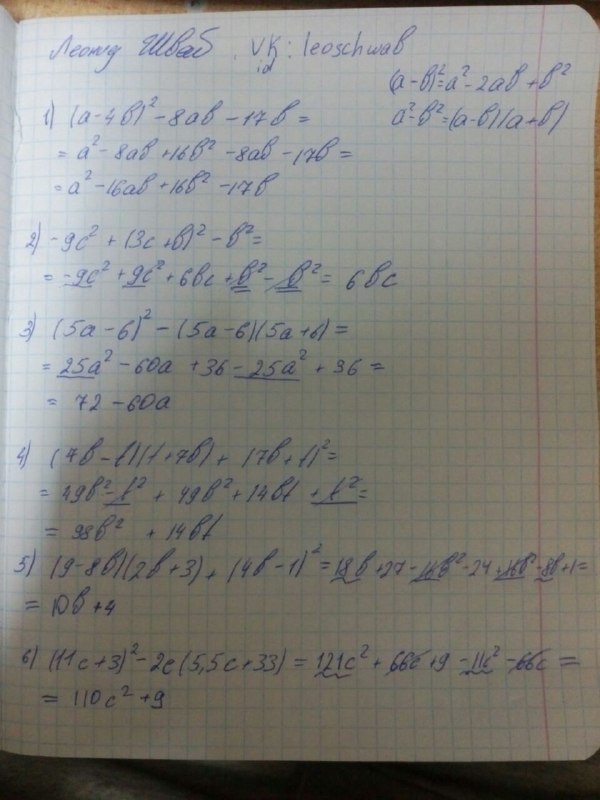 Леонид Шваб, VK: leoschwab
id
(a-b)²=a²-2ab+b²
a²-b²=(a-b)(a+b)
1) (a-4b)²-8ab-17b=
=a²-8ab+16b²-8ab-17b=
=a²-16ab+16b²-17b
2) -9c²+(3c+b)²-b²=
=-9c²+9c²+6bc+b²-b²=6bc
3) (5a-6)²-(5a-6)(5a+6)=
=25a²-60a+36-25a²+36=
=72-60a
4) (7b-t)(t+7b)+(7b+t)²=
=49b²-t²+49b²+14bt+t²=
=98b²+14bt
5) (9-8b)(2b+3)+(4b-1)²=18b+27-16b²-24+16b²-8b+1=
=10b+4
6) (11c+3)²-2c(5,5c+33)=121c²+66c+9-11c²-66c=
=110c²+9